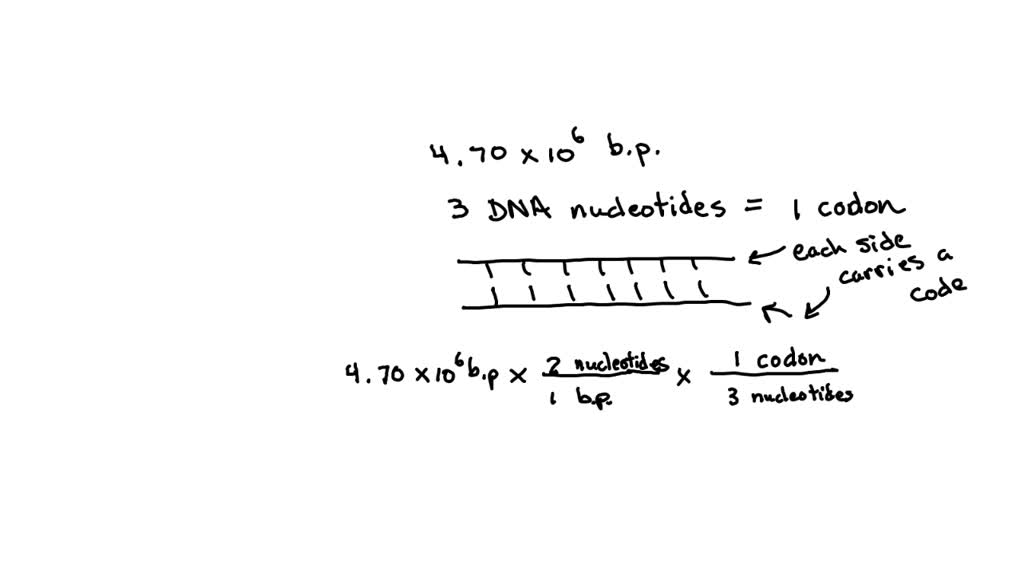 4.70 × 10⁶ b.p.
3 DNA nucleotides = 1 codon
each side
carries a
code
4.70 × 10⁶ b.p × 2 nucleotides / 1 b.p. × 1 codon / 3 nucleotides